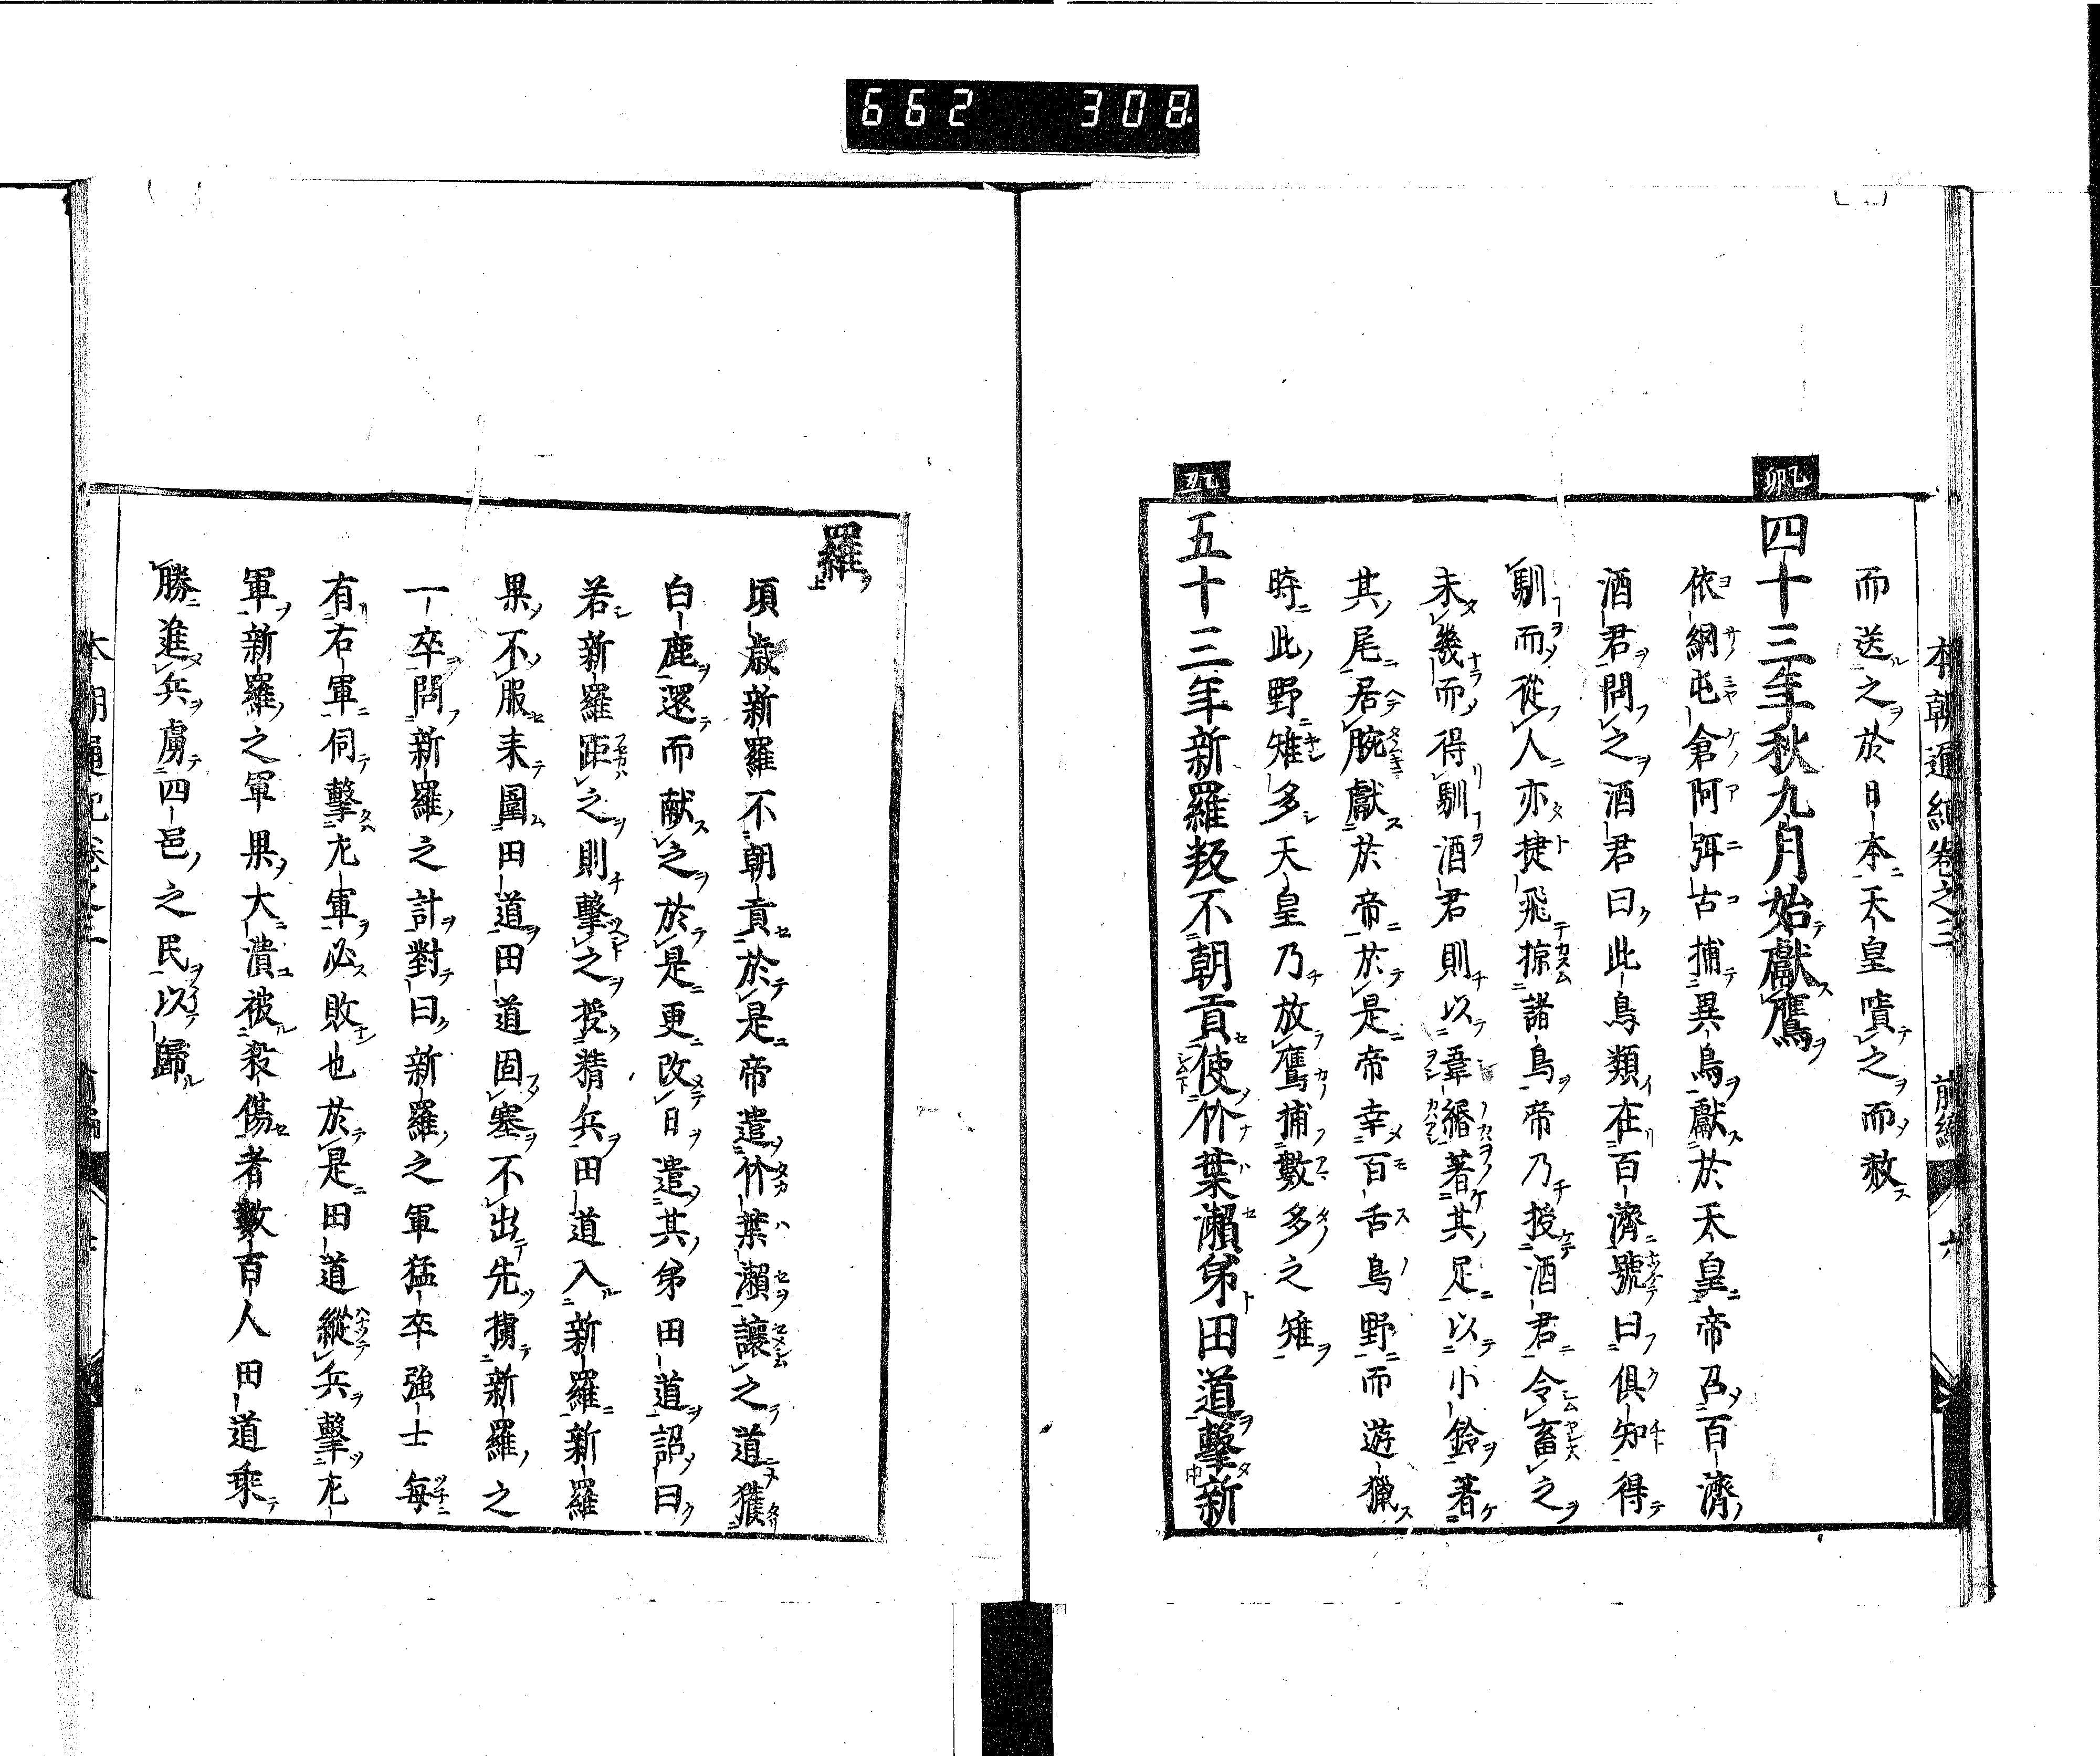 662 308
本朝通紀卷之二 前編 六
而送之於日本天皇嘖之而赦
乙卯
四十三年秋九月始獻鷹
依網屯倉阿弭古捕異鳥獻於天皇帝召百濟
酒君問之酒君曰此鳥類在百濟號曰俱知得
馴而從人亦捷飛掠諸鳥帝乃授酒君令畜之
未幾而得馴酒君則以韋緡著其足以小鈴著
其尾居腕獻於帝於是帝幸百舌鳥野而遊獵
時此野雉多天皇乃放鷹捕數多之雉
乙丑
五十三年新羅叛不朝貢使竹葉瀨弟田道擊新
羅
頃歲新羅不朝貢於是帝遣竹葉瀨讓之道獲
白鹿還而献之於是更改日遣其弟田道詔曰
若新羅距之則擊之授精兵田道入新羅新羅
果不服来圍田道田道固塞不出先擄新羅之
一卒問新羅之計對曰新羅之軍猛卒強士每
有右軍伺擊左軍必敗也於是田道縱兵擊左
軍新羅之軍果大潰被殺傷者數百人田道乘
勝進兵虜四邑之民以歸